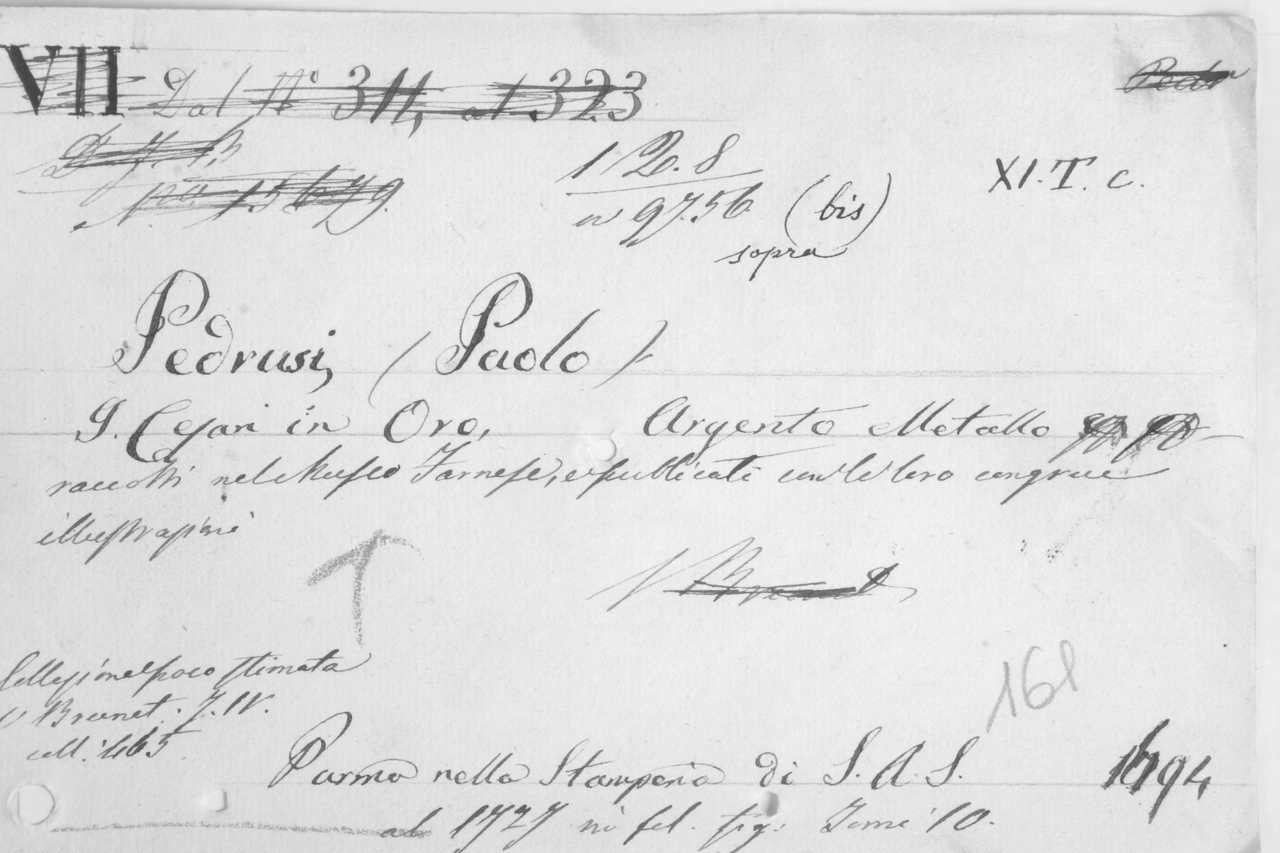 VII Dal N° 311, al 323
Ped
XI. T. c.
1 R. 8
n 9756 (bis)
sopra
N.ro 15679
Pedrusi, (Paolo)
I. Cesari in Oro, Argento Metallo
raccolti nel Museo Farnese, e publicati con le loro congrue
illustrazioni
V Brunet
Collezione poco stimata
V Brunet. T. IV.
coll. 465.
161
Parma nella Stamperia di S. A. S. 1694
al 1727 in fol. fig. Tomi 10.